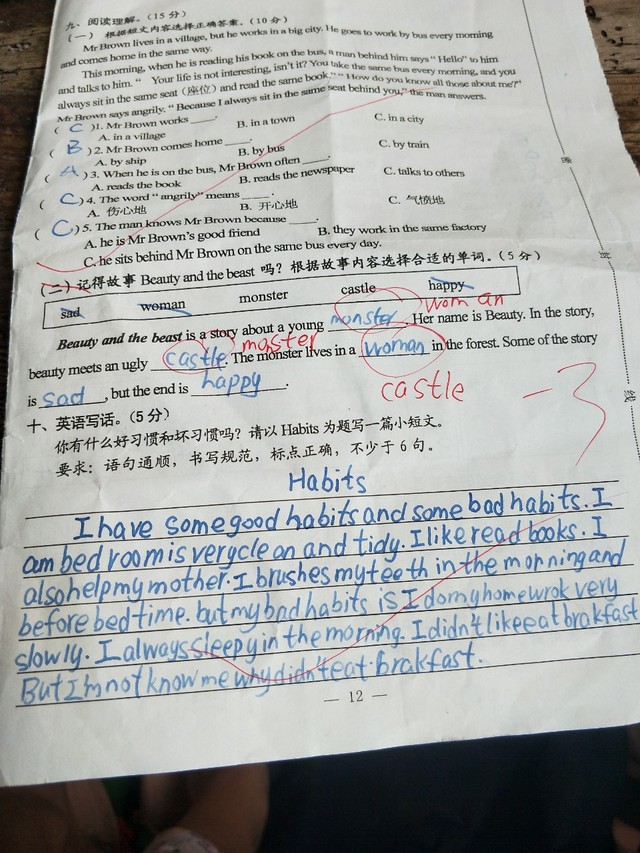 九、阅读理解。(15 分)
(一) 根据短文内容选择正确答案。(10 分)
Mr Brown lives in a village, but he works in a big city. He goes to work by bus every morning
and comes home in the same way.
This morning, when he is reading his book on the bus, a man behind him says “ Hello” to him
and talks to him. “ Your life is not interesting, isn't it? You take the same bus every morning, and you
always sit in the same seat (座位) and read the same book.” “ How do you know all those about me?”
Mr Brown says angrily. “ Because I always sit in the same seat behind you,” the man answers.
( C )1. Mr Brown works ____.
A. in a village B. in a town C. in a city
( B )2. Mr Brown comes home ____.
A. by ship B. by bus C. by train
( A )3. When he is on the bus, Mr Brown often ____.
A. reads the book B. reads the newspaper C. talks to others
( C )4. The word “ angrily” means ____.
A. 伤心地 B. 开心地 C. 气愤地
( C )5. The man knows Mr Brown because ____.
A. he is Mr Brown's good friend B. they work in the same factory
C. he sits behind Mr Brown on the same bus every day.
(二)记得故事 Beauty and the beast 吗？根据故事内容选择合适的单词。(5 分)
sad woman monster castle happy
woman
Beauty and the beast is a story about a young monster. Her name is Beauty. In the story,
monster
beauty meets an ugly castle. The monster lives in a woman in the forest. Some of the story
is sad, but the end is happy.
castle -3
十、英语写话。(5 分)
你有什么好习惯和坏习惯吗？请以 Habits 为题写一篇小短文。
要求：语句通顺，书写规范，标点正确，不少于 6 句。
Habits
I have some good habits and some bad habits. I
am bed room is very clean and tidy. I like read books. I
also help my mother. I brushes my teeth in the morning and
before bed time. but my bad habits is I do my homewrok very
slowly. I always sleepy in the morning. I didn't like eat brakfast
But I'm not know me why didn't eat brakfast.
— 12 —
线